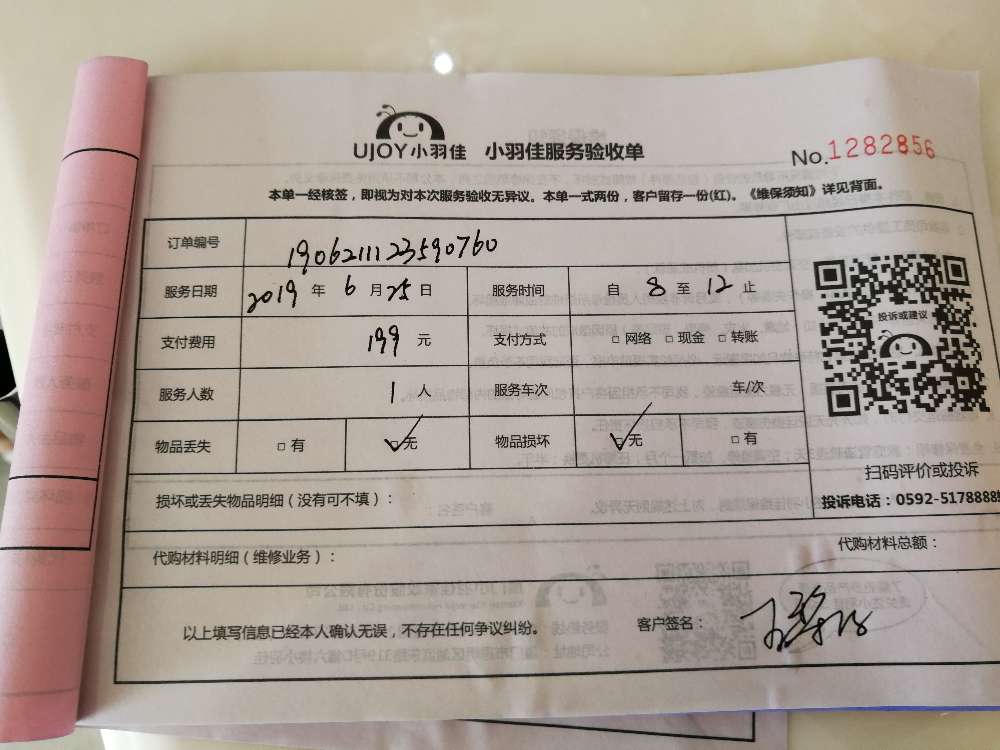 UJOY小羽佳 小羽佳服务验收单
No.1282856
本单一经核签，即视为对本次服务验收无异议。本单一式两份，客户留存一份(红)。《维保须知》详见背面。
订单编号 1906211123590760
服务日期 2019 年 6 月 25 日 服务时间 自 8 至 12 止
投诉或建议
支付费用 199 元 支付方式 □ 网络 □ 现金 □ 转账
服务人数 1 人 服务车次 车/次
物品丢失 □ 有 □ 无 物品损坏 □ 无 □ 有
扫码评价或投诉
损坏或丢失物品明细（没有可不填）：
投诉电话：0592-5178888
代购材料明细（维修业务）： 代购材料总额：
以上填写信息已经本人确认无误，不存在任何争议纠纷。 客户签名：